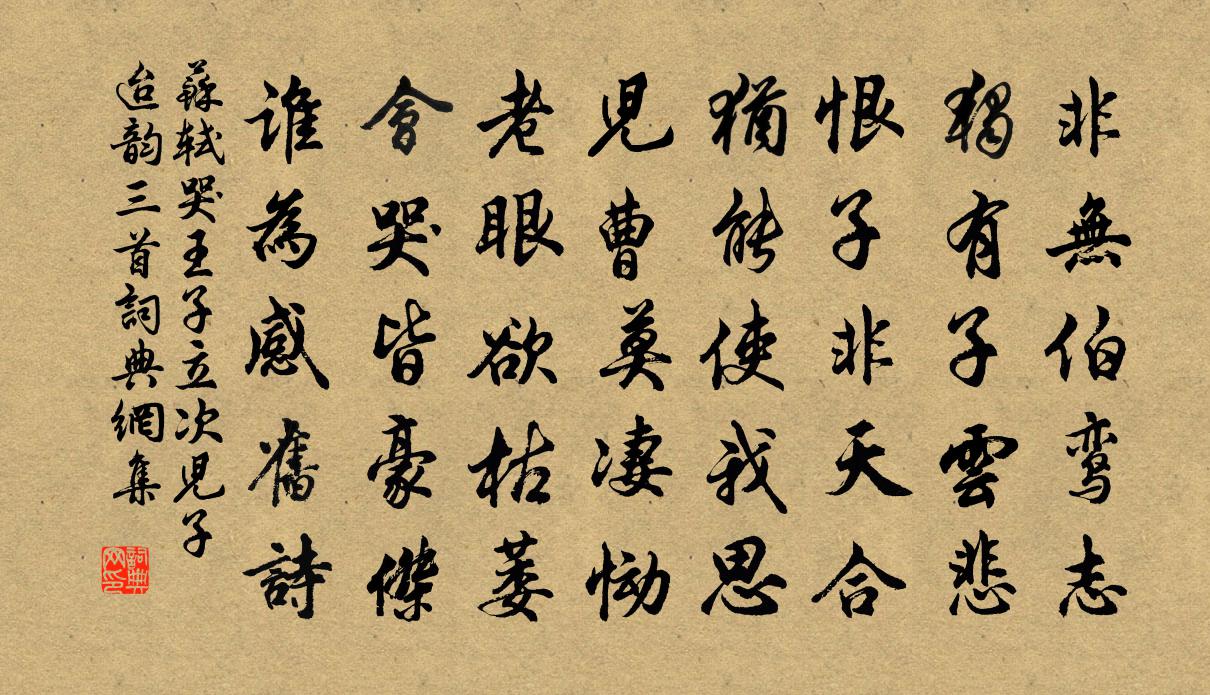 非無伯鸞志
獨有子雲悲
恨子非天合
猶能使我思
兒曹莫凄慟
老眼欲枯萎
會哭皆豪傑
誰為感舊詩
蘇軾哭王子立次兒子
迨韵三首詞典網集
詞典網印